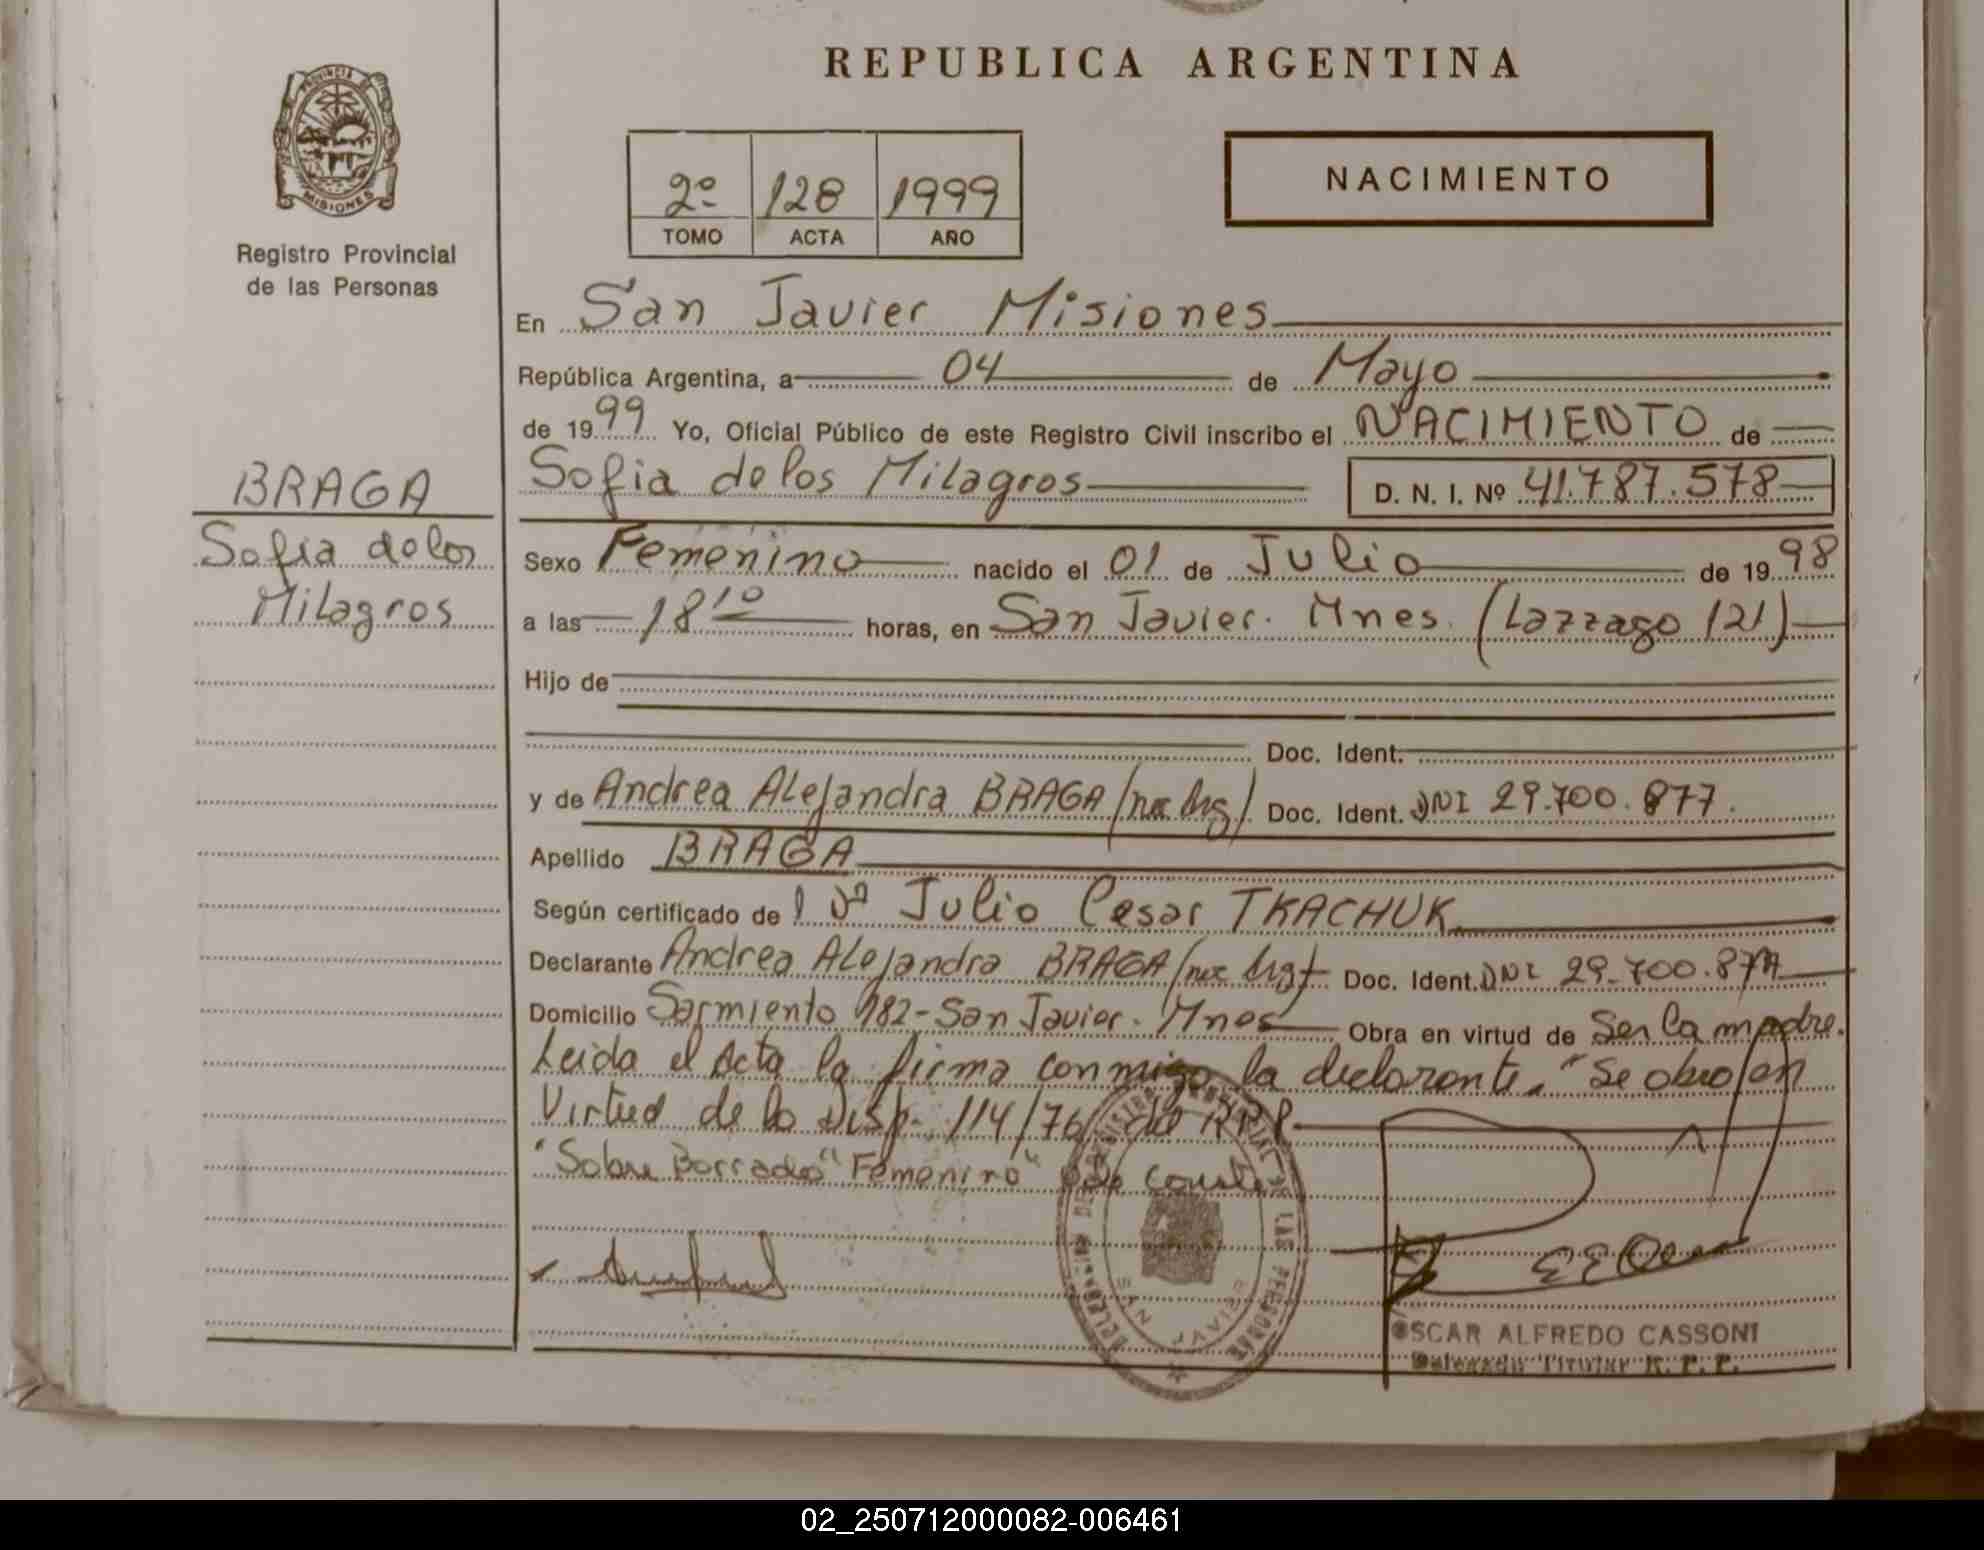 REPUBLICA ARGENTINA
PROVINCIA DE
MISIONES
Registro Provincial
de las Personas
2º 128 1999
TOMO ACTA AÑO
NACIMIENTO
En San Javier Misiones
República Argentina, a 04 de Mayo
de 1999 Yo, Oficial Público de este Registro Civil inscribo el NACIMIENTO de
Sofia de los Milagros D. N. I. Nº 41.787.578
BRAGA
Sofia de los
Milagros
Sexo Femenino nacido el 01 de Julio de 1998
a las 18 10 horas, en San Javier. Mnes. (Lazzago 121)
Hijo de
Doc. Ident.
y de Andrea Alejandra BRAGA Doc. Ident. DNI 29.700.877.
Apellido BRAGA
Según certificado de Julio Cesar TKACHUK
Declarante Andrea Alejandra BRAGA Doc. Ident. DNI 29.700.877
Domicilio Sarmiento 982-San Javier. Mnes Obra en virtud de Ser la madre.
Leida el Acta la firma conmigo la declarante. "Se obro en
Virtud de la Disp. 114/76 del RPP.
"Sobre Borrado" "Femenino"
DELEGACION DEL REGISTRO PROVINCIAL DE LAS PERSONAS
SAN JAVIER
OSCAR ALFREDO CASSONI
Delegado Titular R. P. P.
02_250712000082-006461